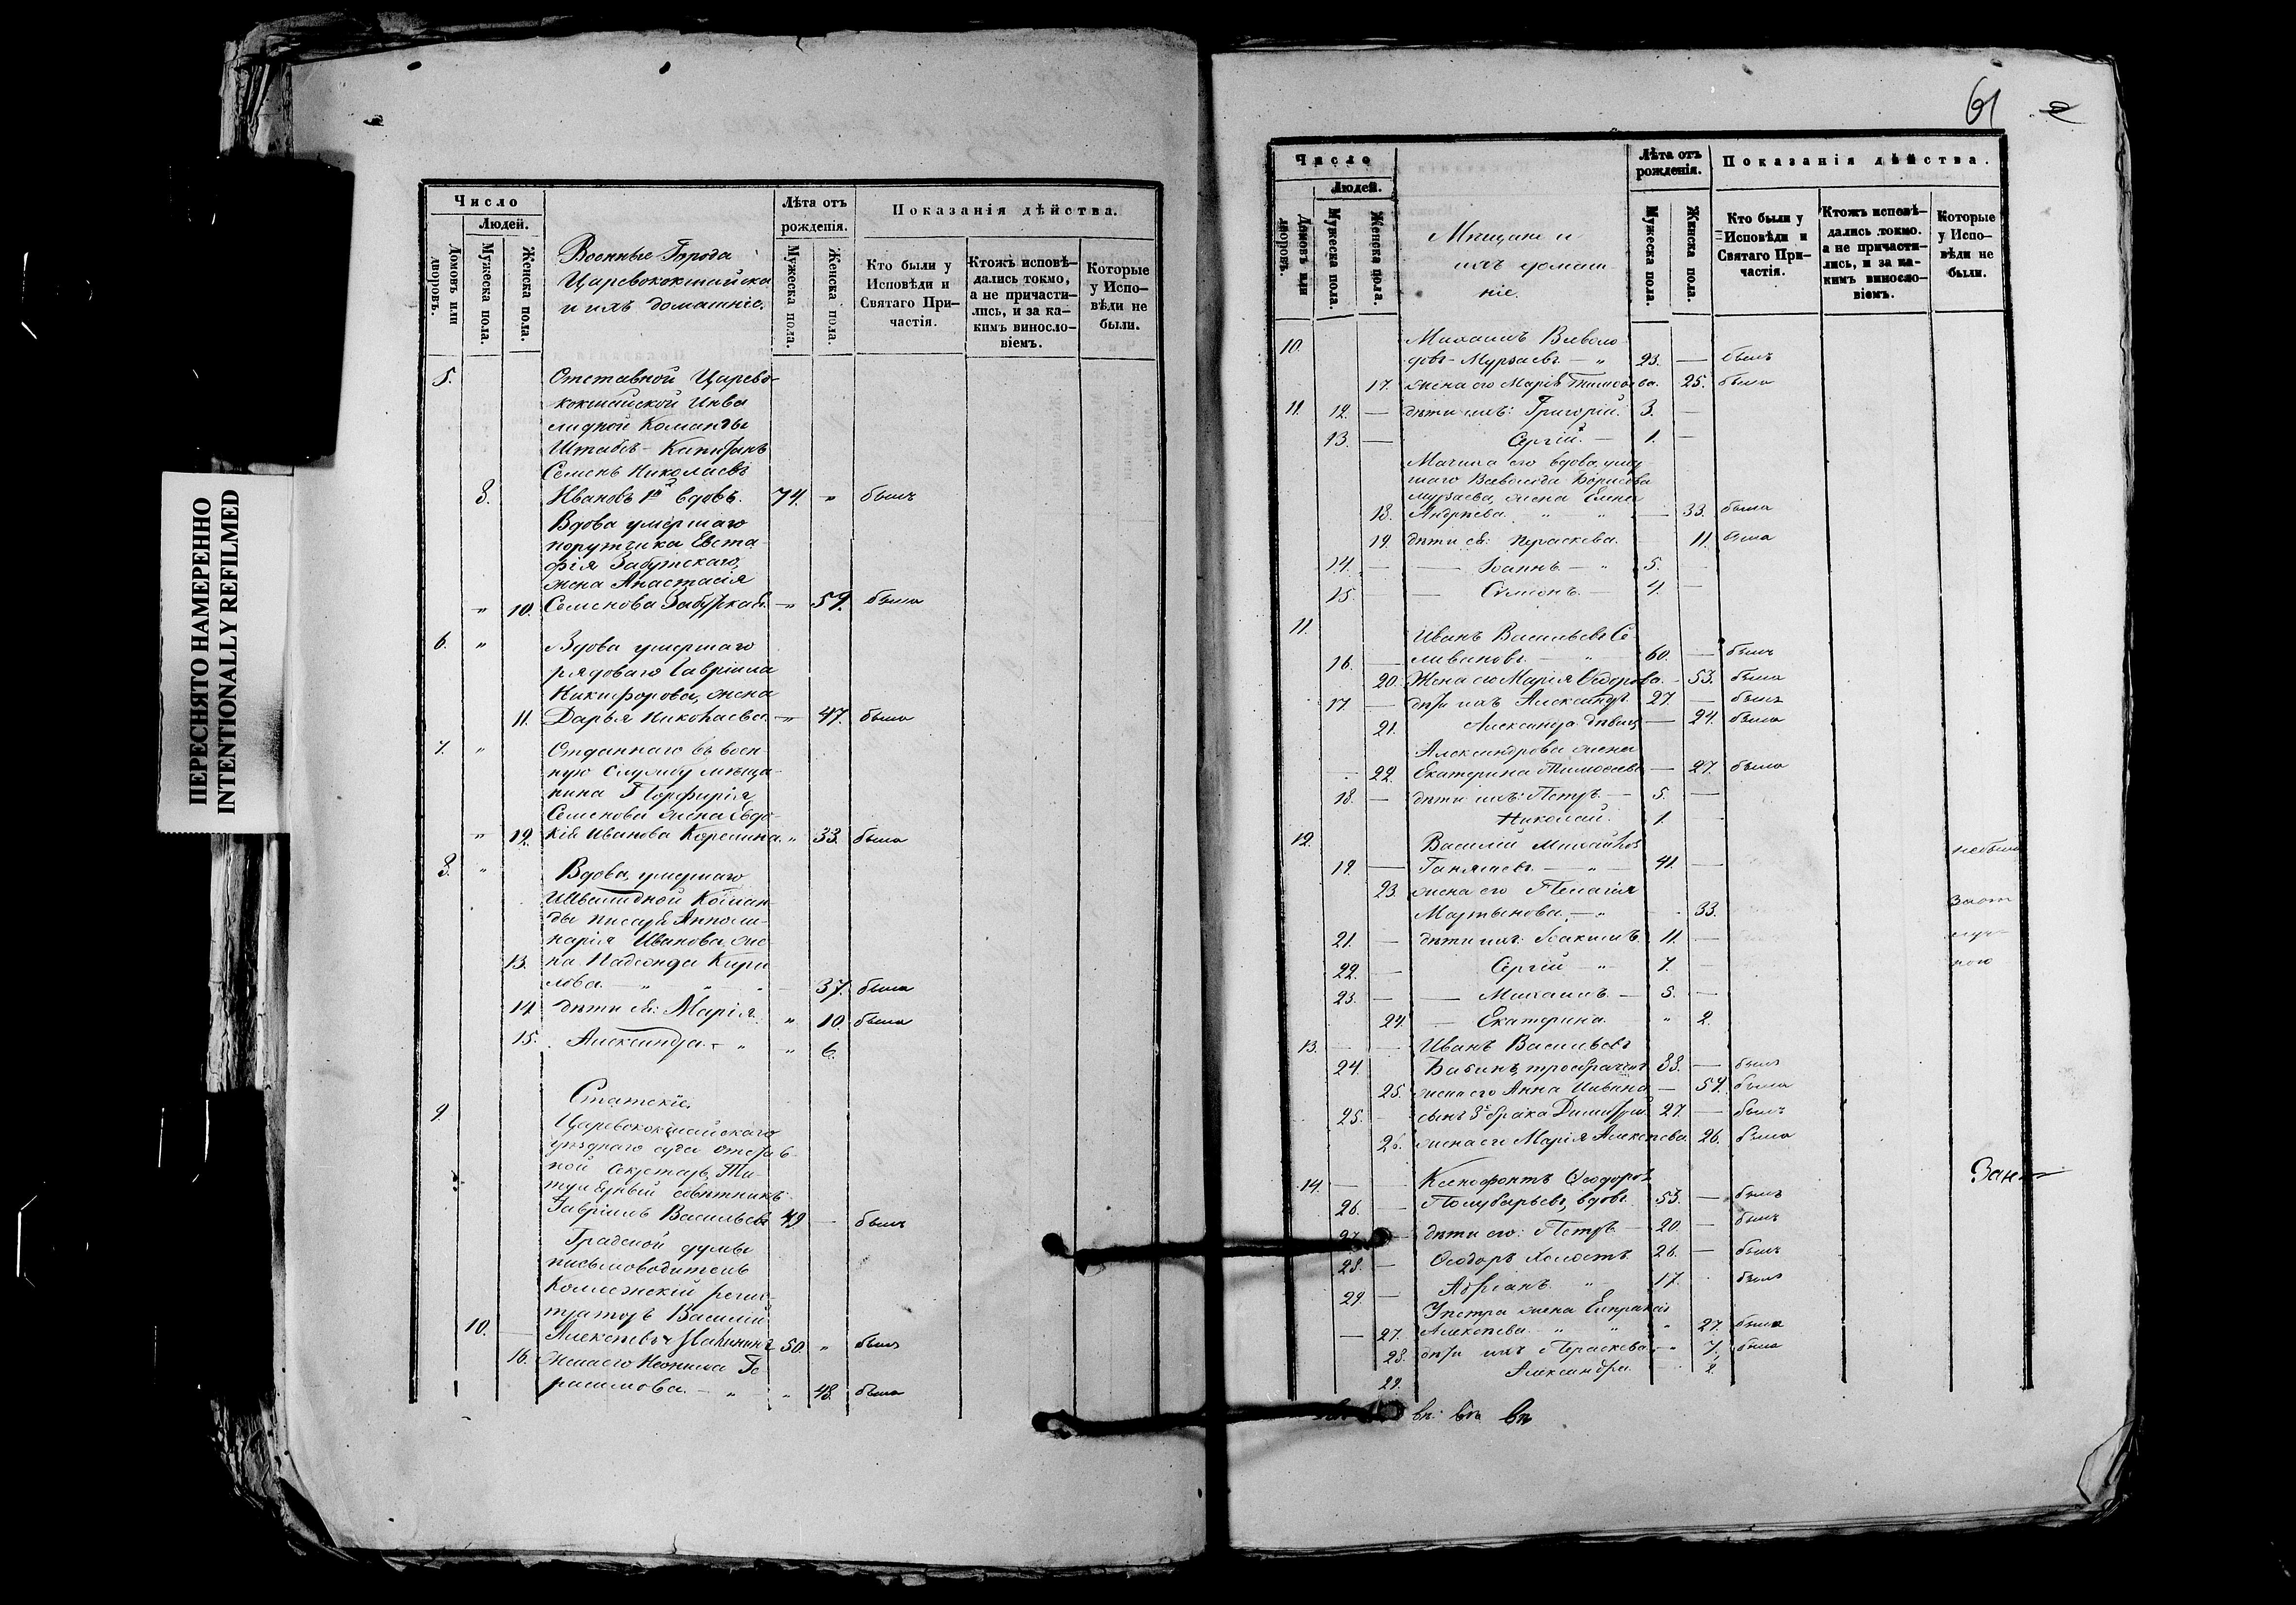 ПЕРЕСНЯТО НАМЕРЕННО
INTENTIONALLY REFILMED
Число
Людей.
Домовъ или дворовъ.
Мужеска пола.
Женска пола.
Военные Города
Царевококшайска
и ихъ домашніе.
Лѣта отъ рожденія.
Мужеска пола.
Женска пола.
Показанія дѣйства.
Кто были у Исповѣди и Святаго Причастія.
Ктожъ исповѣдались токмо, а не причастились, и за какимъ винословіемъ.
Которые у Исповѣди не были.
5. Отставной Царево-
кокшайской Инва
лидной Команды
Штабсъ-Капитанъ
Семенъ Николаевъ
Ивановъ 1й вдовъ. 74. " былъ
Вдова умершаго
порутчика Евста
фія Забутскаго,
жена Анастасія
" 10. Семенова Забутская. " 59. была
6. " Вдова умершаго
рядоваго Гавріила
Никифорова, жена
11. Дарья Николаева " 47. была
7. " Отданнаго въ воен
ную службу мѣща-
нина Порфирія
Семенова жена Евдо-
" 12. кія Иванова " 33. была
8. " Вдова, умершаго
Инвалидной Коман-
ды писаря Апполи-
нарія Иванова, же-
13. на Надежда Кири
лова. 37. была
14. дѣти ея: Марія. " 10. была
15. Александра " 6.
Статскіе.
9. Царевококшайскаго
уѣзднаго суда отстав-
ной секретарь, Ти-
тулярный совѣтникъ
Гавріилъ Васильевъ 49 — былъ
Градской думы
письмоводитель
Коллежскій регис-
траторъ Василій
10. Алексѣевъ 50. " былъ
16. жена его Неонила Ге
расимова. " " 48. была
61
Число
Людей.
Домовъ или дворовъ.
Мужеска пола.
Женска пола.
Мѣщане и
ихъ домаш-
ніе.
Лѣта отъ рожденія.
Мужеска пола.
Женска пола.
Показанія дѣйства.
Кто были у Исповѣди и Святаго Причастія.
Ктожъ исповѣдались токмо, а не причастились, и за какимъ винословіемъ.
Которые у Исповѣди не были.
10. Михаилъ Всеволо
довъ Мурзаевъ — " 23. — былъ
17. жена его Марія 25. была
11. 12. — дѣти ихъ: Григорій. 3. —
13. — Сергій. — 1. —
Мачиха его вдова, умер
шаго Всеволода Борисова
Мурзаева, жена Елена
18. Андреева. " " — 33. была
19. дѣти ея: Параскева. 11. была
14. — — Іоаннъ. — " 5.
15. — Симеонъ. — 4. —
11. Иванъ Васильевъ Се
16. — ливановъ. — " 60. — былъ
20. Жена его Марія Ѳедорова. — 53. была
17 — дѣти ихъ Александръ 27. — былъ
21. Александра дѣвица — 24. была
Александрова жена
— 22. Екатерина Тимоѳеева — 27. была
18. — дѣти ихъ: Петръ. — 5. —
Николай. 1.
12. Василій Михайловъ небыли
19. — — " — 41. —
23. жена его Пелагія
Мартынова. — " 33. за от
21. — дѣти ихъ: Іоакимъ. 11. — луч-
22. — Сергій — " 7. — кою
23. — — Михаилъ. — 5. —
24. — Екатерина. " 2.
13. — — Иванъ Васильевъ
24. Бабинъ, троебрачной 83. — былъ
25. жена его Анна Ильина — 59. была
25. — сынъ 3го брака Димитрій. 27. — былъ
26. жена его Марія Алексѣева. 26. была
14. — — Ксенофонтъ Ѳеодоровъ
26. — Полубарьевъ, вдовъ. 53. — былъ
27. — дѣти его: Петръ — 20. — былъ
28. — Ѳеодоръ холостъ. 26. — былъ
29. — Адріанъ. " 17. былъ
У петра жена Евпраксія
— 27. Алексѣева. " " " 27. была
28. дѣти ихъ Параскева. — " 7. была
29. Александра. 2.